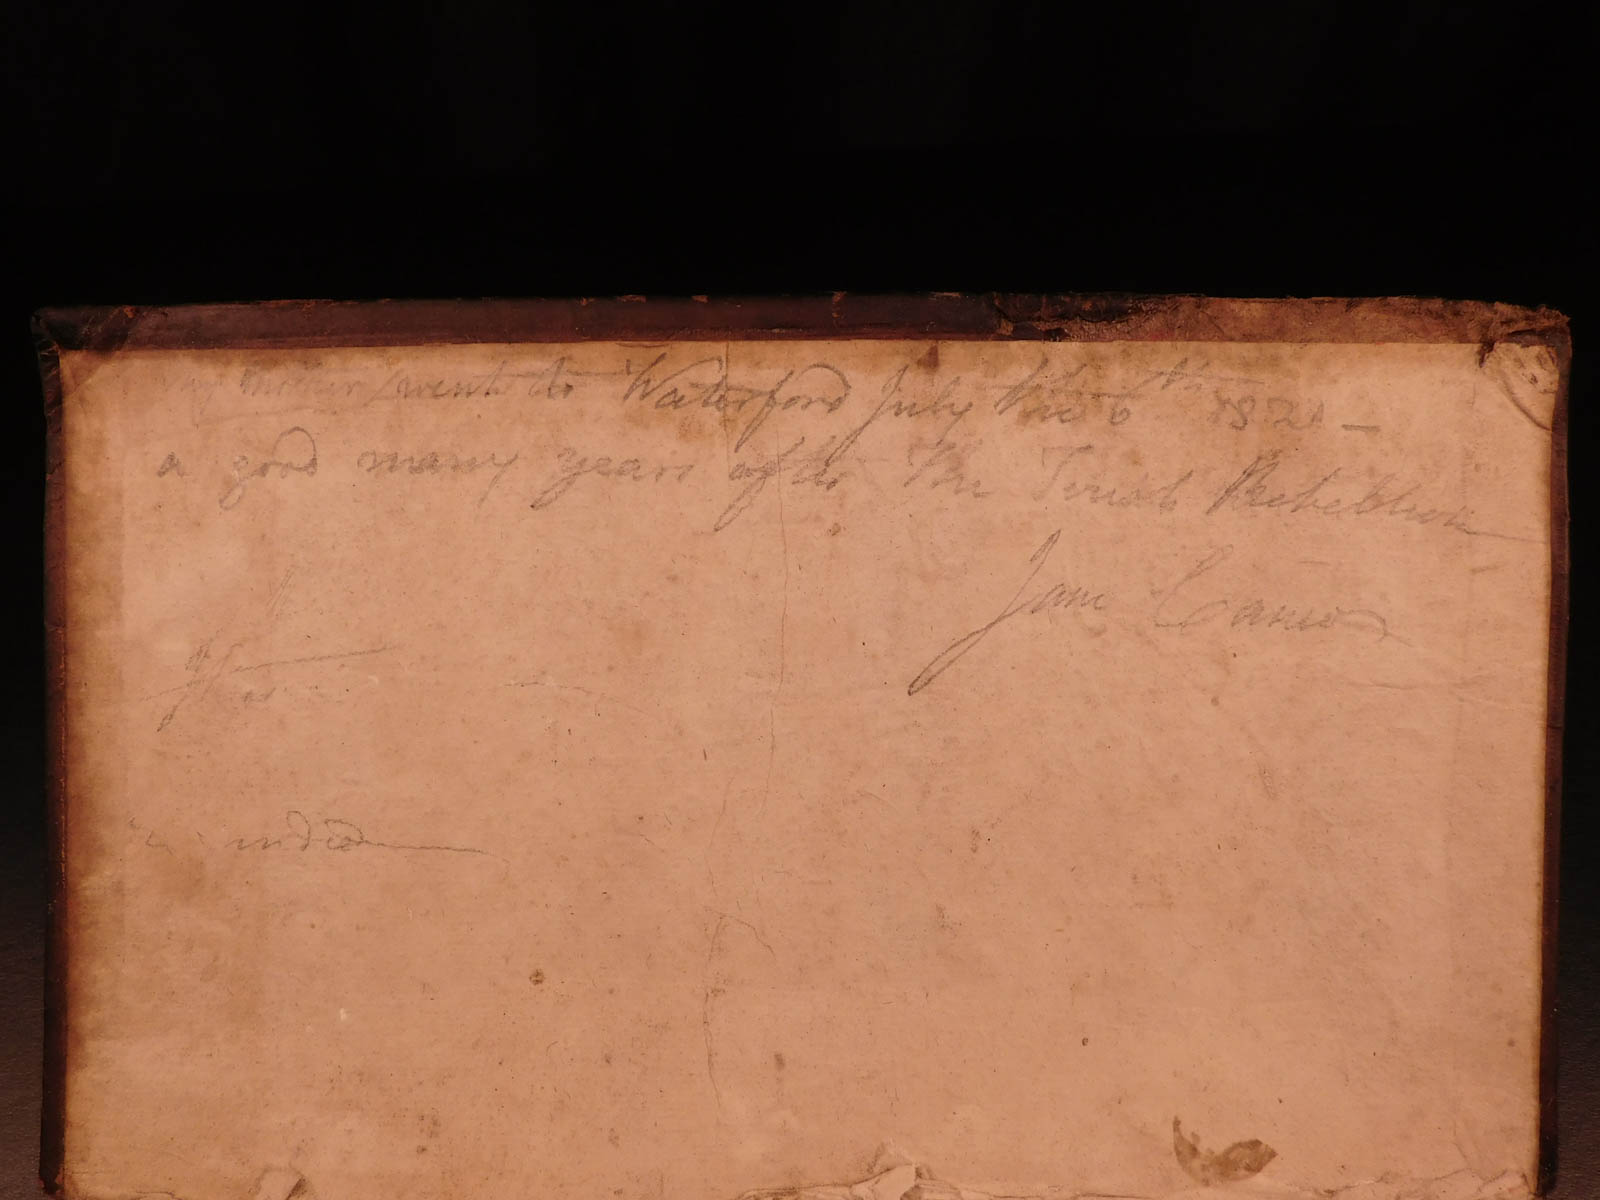 my mother went to Waterford July the 6th 182 –
a good many years after the Irish Rebellion
Jane
indeed